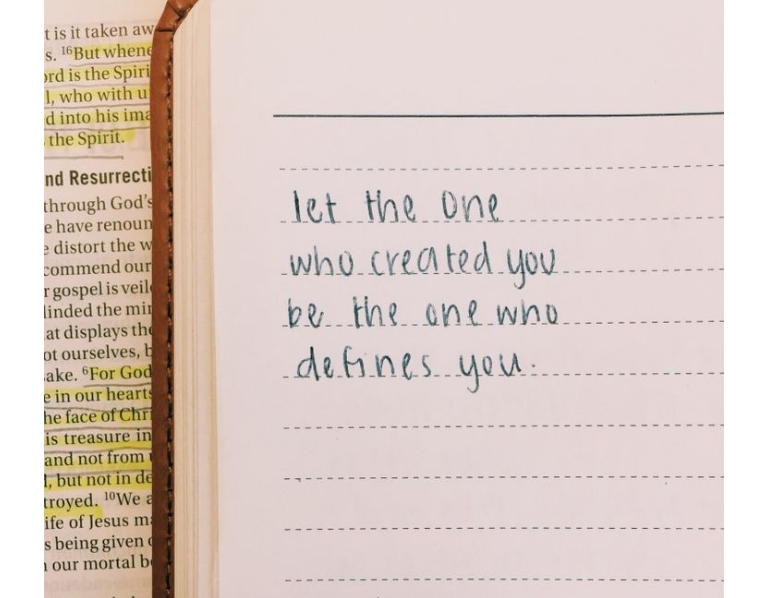 t is it taken aw
s. ¹⁶But whene
ord is the Spiri
l, who with u
d into his ima
the Spirit.
nd Resurrecti
through God's
e have renoun
e distort the w
commend our
r gospel is veil
linded the min
at displays the
ot ourselves, b
ake. ⁶For God
e in our hearts
he face of Chri
is treasure in
and not from
, but not in de
troyed. ¹⁰We a
ife of Jesus ma
s being given
our mortal b
let the One
who created you
be the one who
defines you.